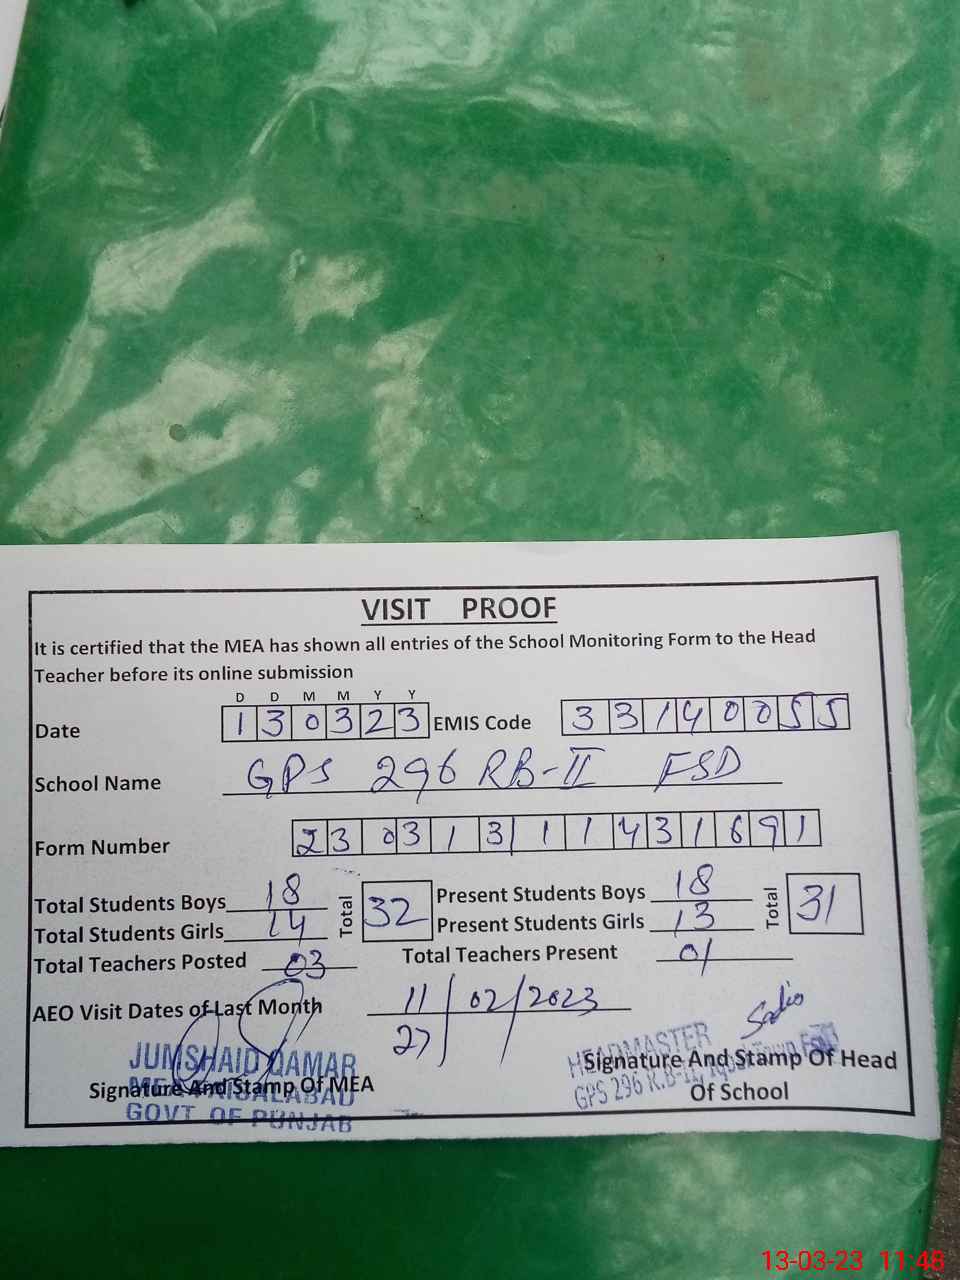 VISIT PROOF
It is certified that the MEA has shown all entries of the School Monitoring Form to the Head
Teacher before its online submission
D D M M Y Y
Date 1 3 0 3 2 3 EMIS Code 3 3 1 4 0 0 5 5
School Name GPS 296 RB-II FSD
Form Number 2 3 0 3 1 3 1 1 4 3 1 6 9 1
Total Students Boys 18 Total 32 Present Students Boys 18 Total 31
Total Students Girls 14 Present Students Girls 13
Total Teachers Posted 03 Total Teachers Present 01
AEO Visit Dates of Last Month 11/02/2023
27
JUMSHAID QAMAR
MEA FAISALABAD
GOVT OF PUNJAB
Signature And Stamp Of MEA
HEADMASTER
GPS 296 R.B-II,
Signature And Stamp Of Head
Of School
13-03-23 11:48